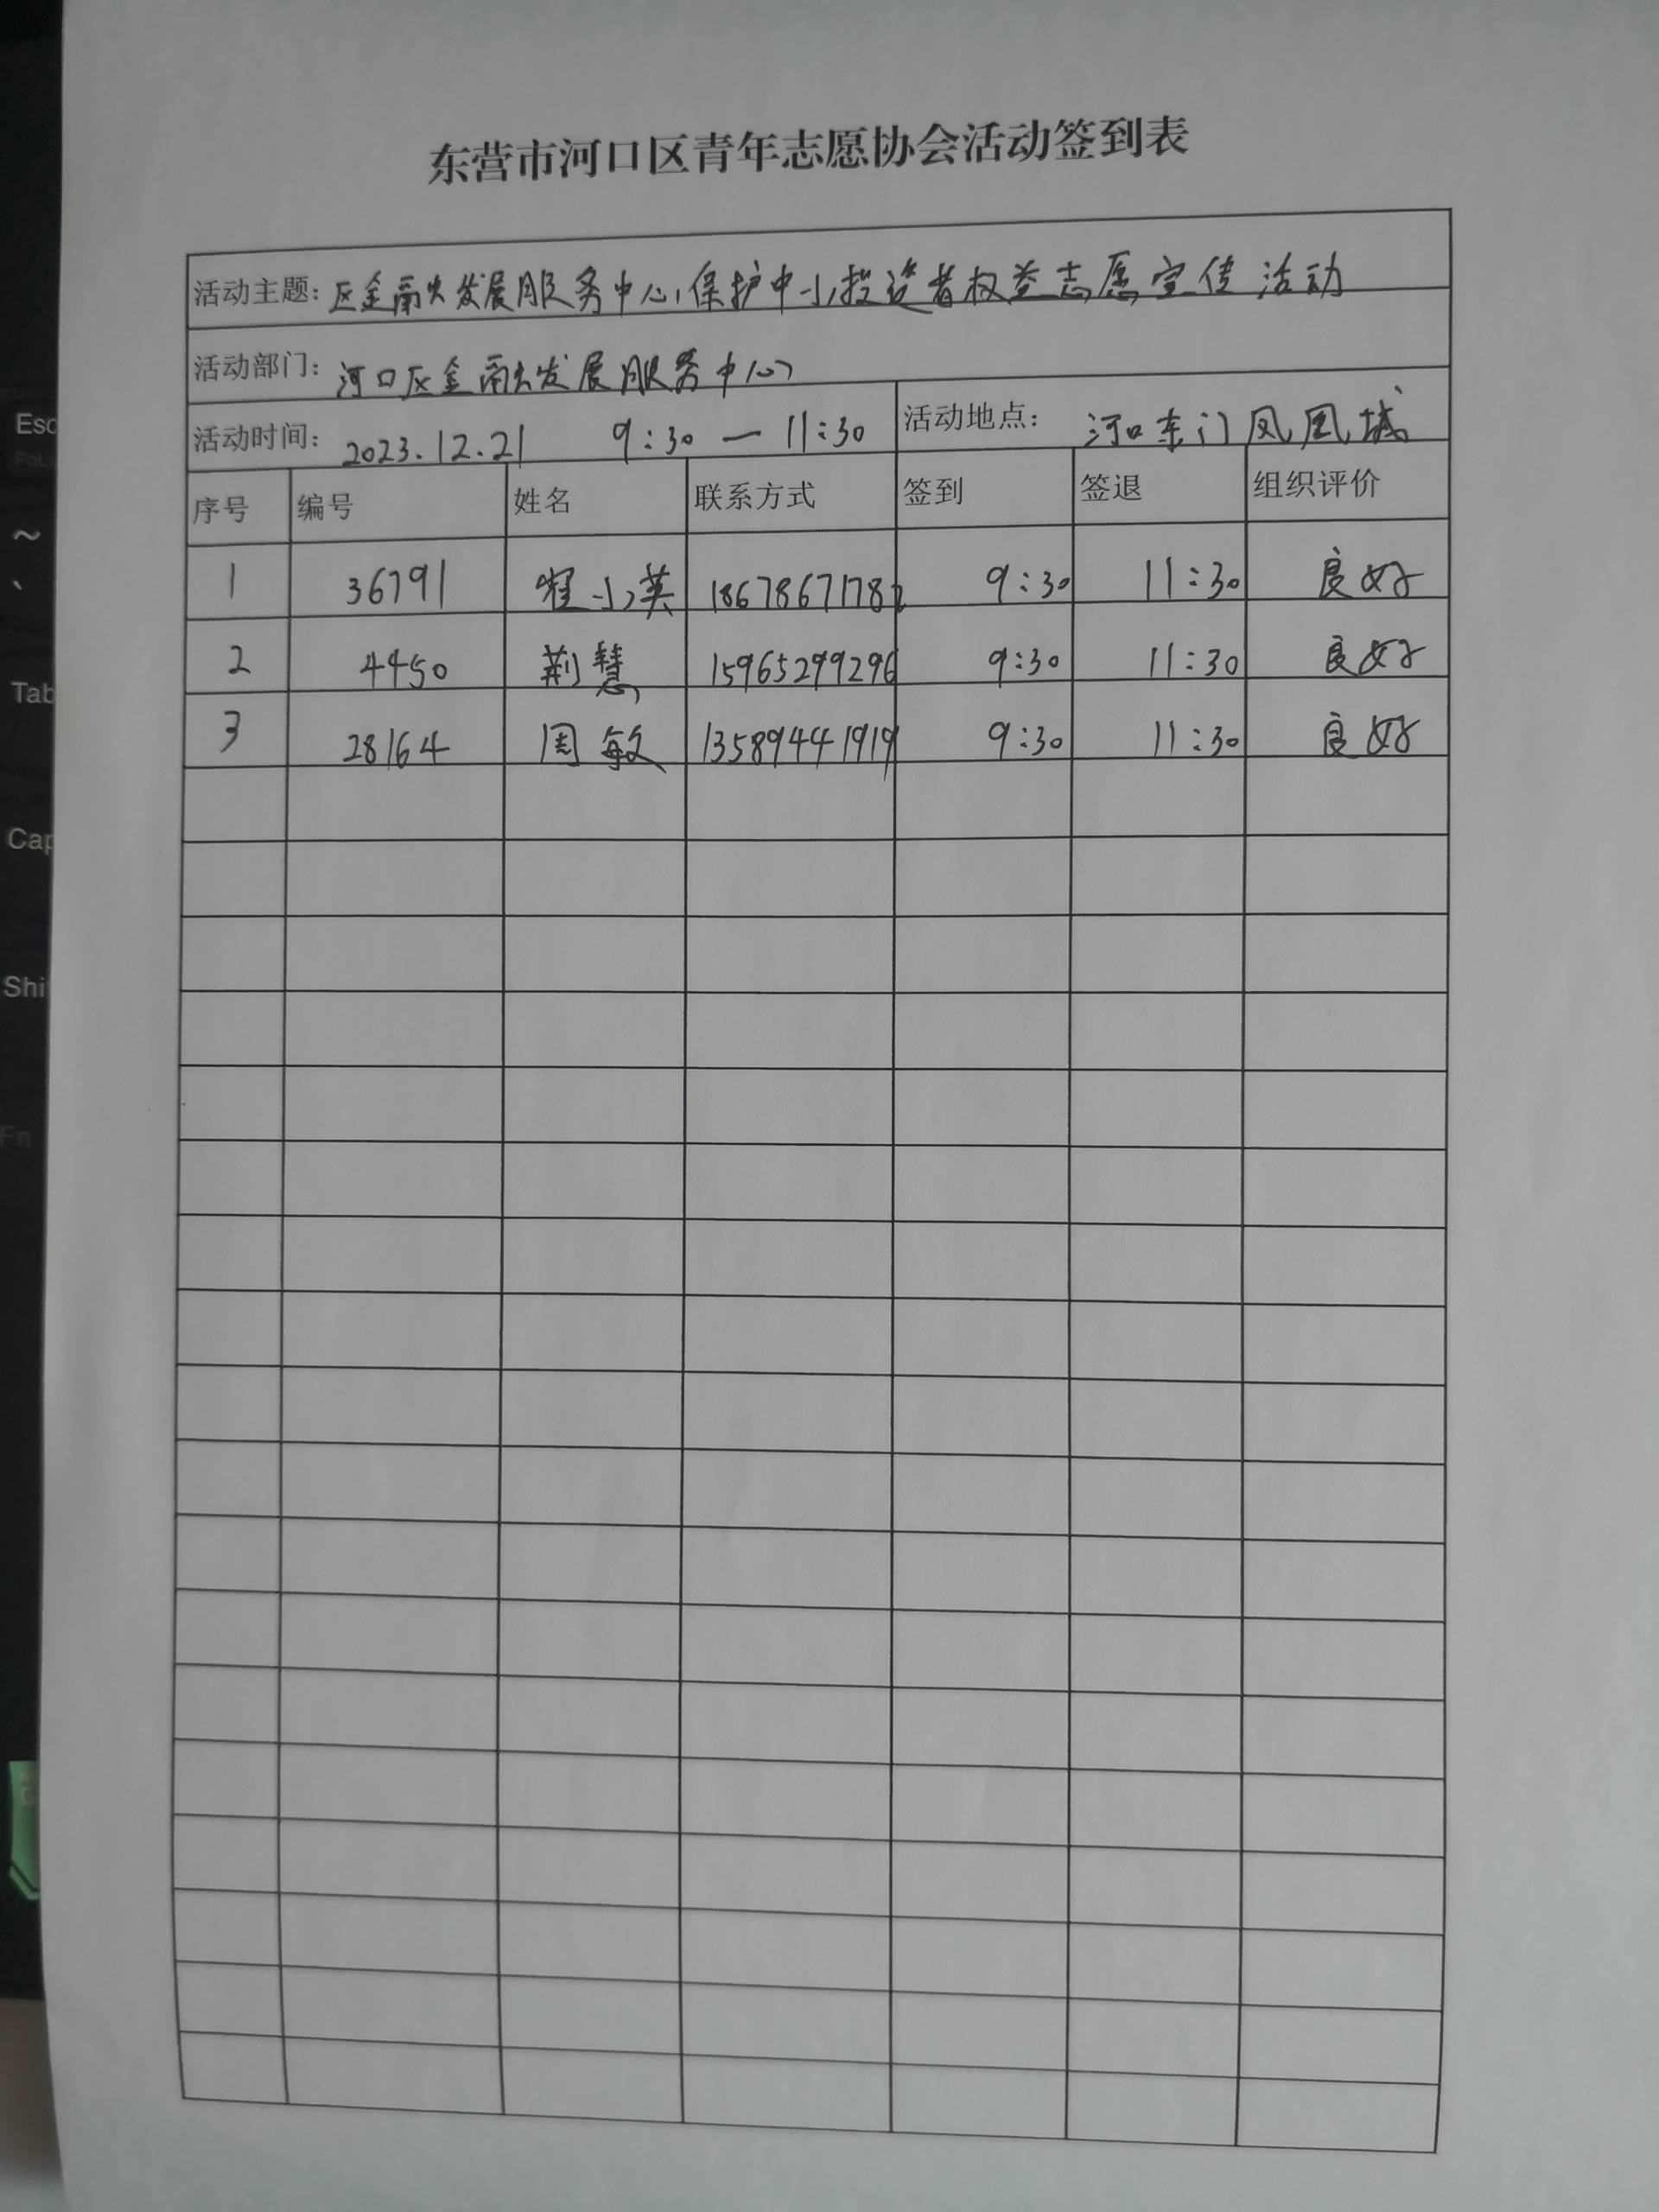 东营市河口区青年志愿协会活动签到表
活动主题：区金融发展服务中心保护中小投资者权益志愿宣传活动
活动部门：河口区金融发展服务中心
活动时间：2023.12.21 9:30—11:30 活动地点：河口东门凤凰城
序号 编号 姓名 联系方式 签到 签退 组织评价
1 36791 小英 9:30 11:30 良好
2 4450 荆慧 15965299296 9:30 11:30 良好
3 28164 周敏 13589441919 9:30 11:30 良好
Esc
~
、
Tab
Cap
Shi
Fn